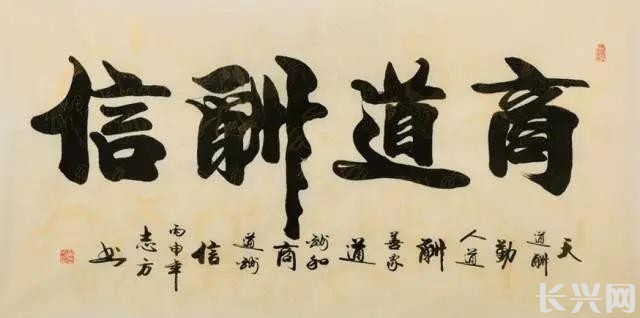 商道酬信
天道酬勤人道酬善家道酬和商道酬信
丙申年
志方书
长兴网